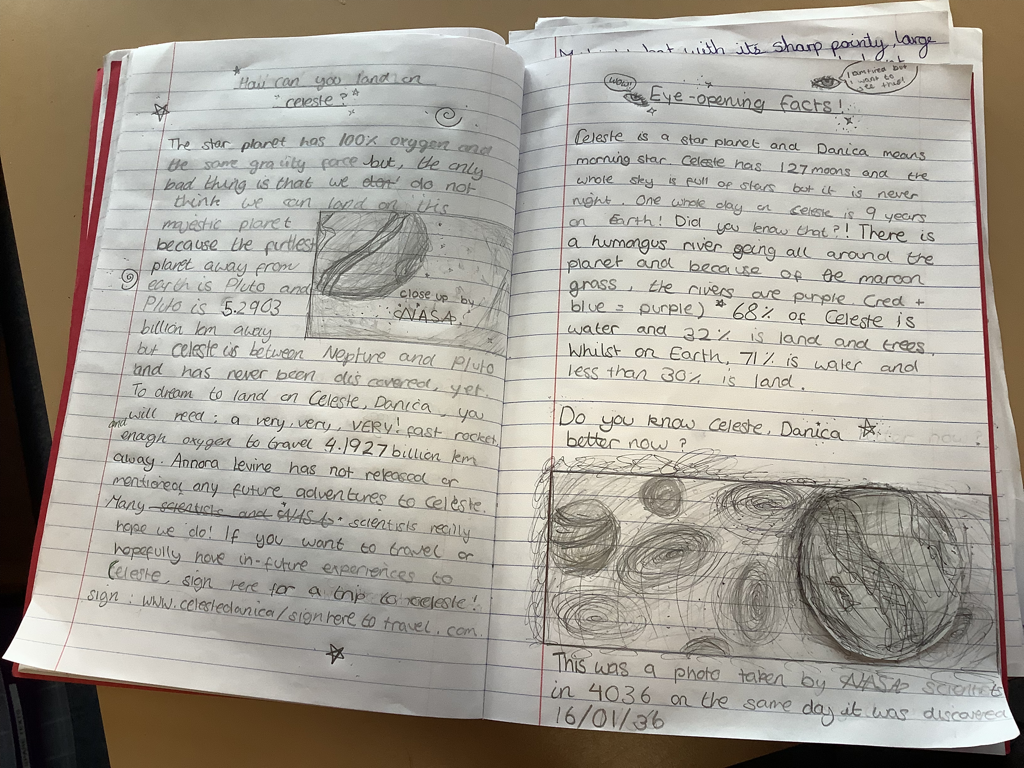 How can you land on
celeste?
The star planet has 100% oxygen and
the same gravity force but, the only
bad thing is that we do not
think we can land on this
majestic planet
because the furtlest
planet away from
earth is Pluto and
Pluto is 5.2903
billion km away
but celeste is between Neptune and Pluto
and has never been discovered, yet.
To dream to land on Celeste, Danica, you
will need: a very, very, VERY! fast rocket
and enagh oxygen to travel 4.1927 billion km
away. Annora Levine has not released or
mentioned any future adventures to celeste.
Many scientists and NASA scientists really
hope we do! If you want to travel or
hopefully have in-future experiences to
Celeste, sign here for a trip to celeste!
sign: www.celestedanica/signhere to travel.com.
close up by
NASA
Make my bat with its sharp pointy, large
Wow!
I am tired but
I want to
see this!
Eye-opening facts!
Celeste is a star planet and Danica means
morning star. Celeste has 127 moons and the
whole sky is full of stars but it is never
night. One whole day on Celeste is 9 years
on Earth! Did you know that?! There is
a humongus river going all around the
planet and because of the maroon
grass, the rivers are purple (red +
blue = purple) * 68% of Celeste is
water and 32% is land and trees.
Whilst on Earth, 71% is water and
less than 30% is land.
Do you know celeste, Danica
better now?
This was a photo taken by NASA scientists
in 4036 on the same day it was discovered
16/01/36